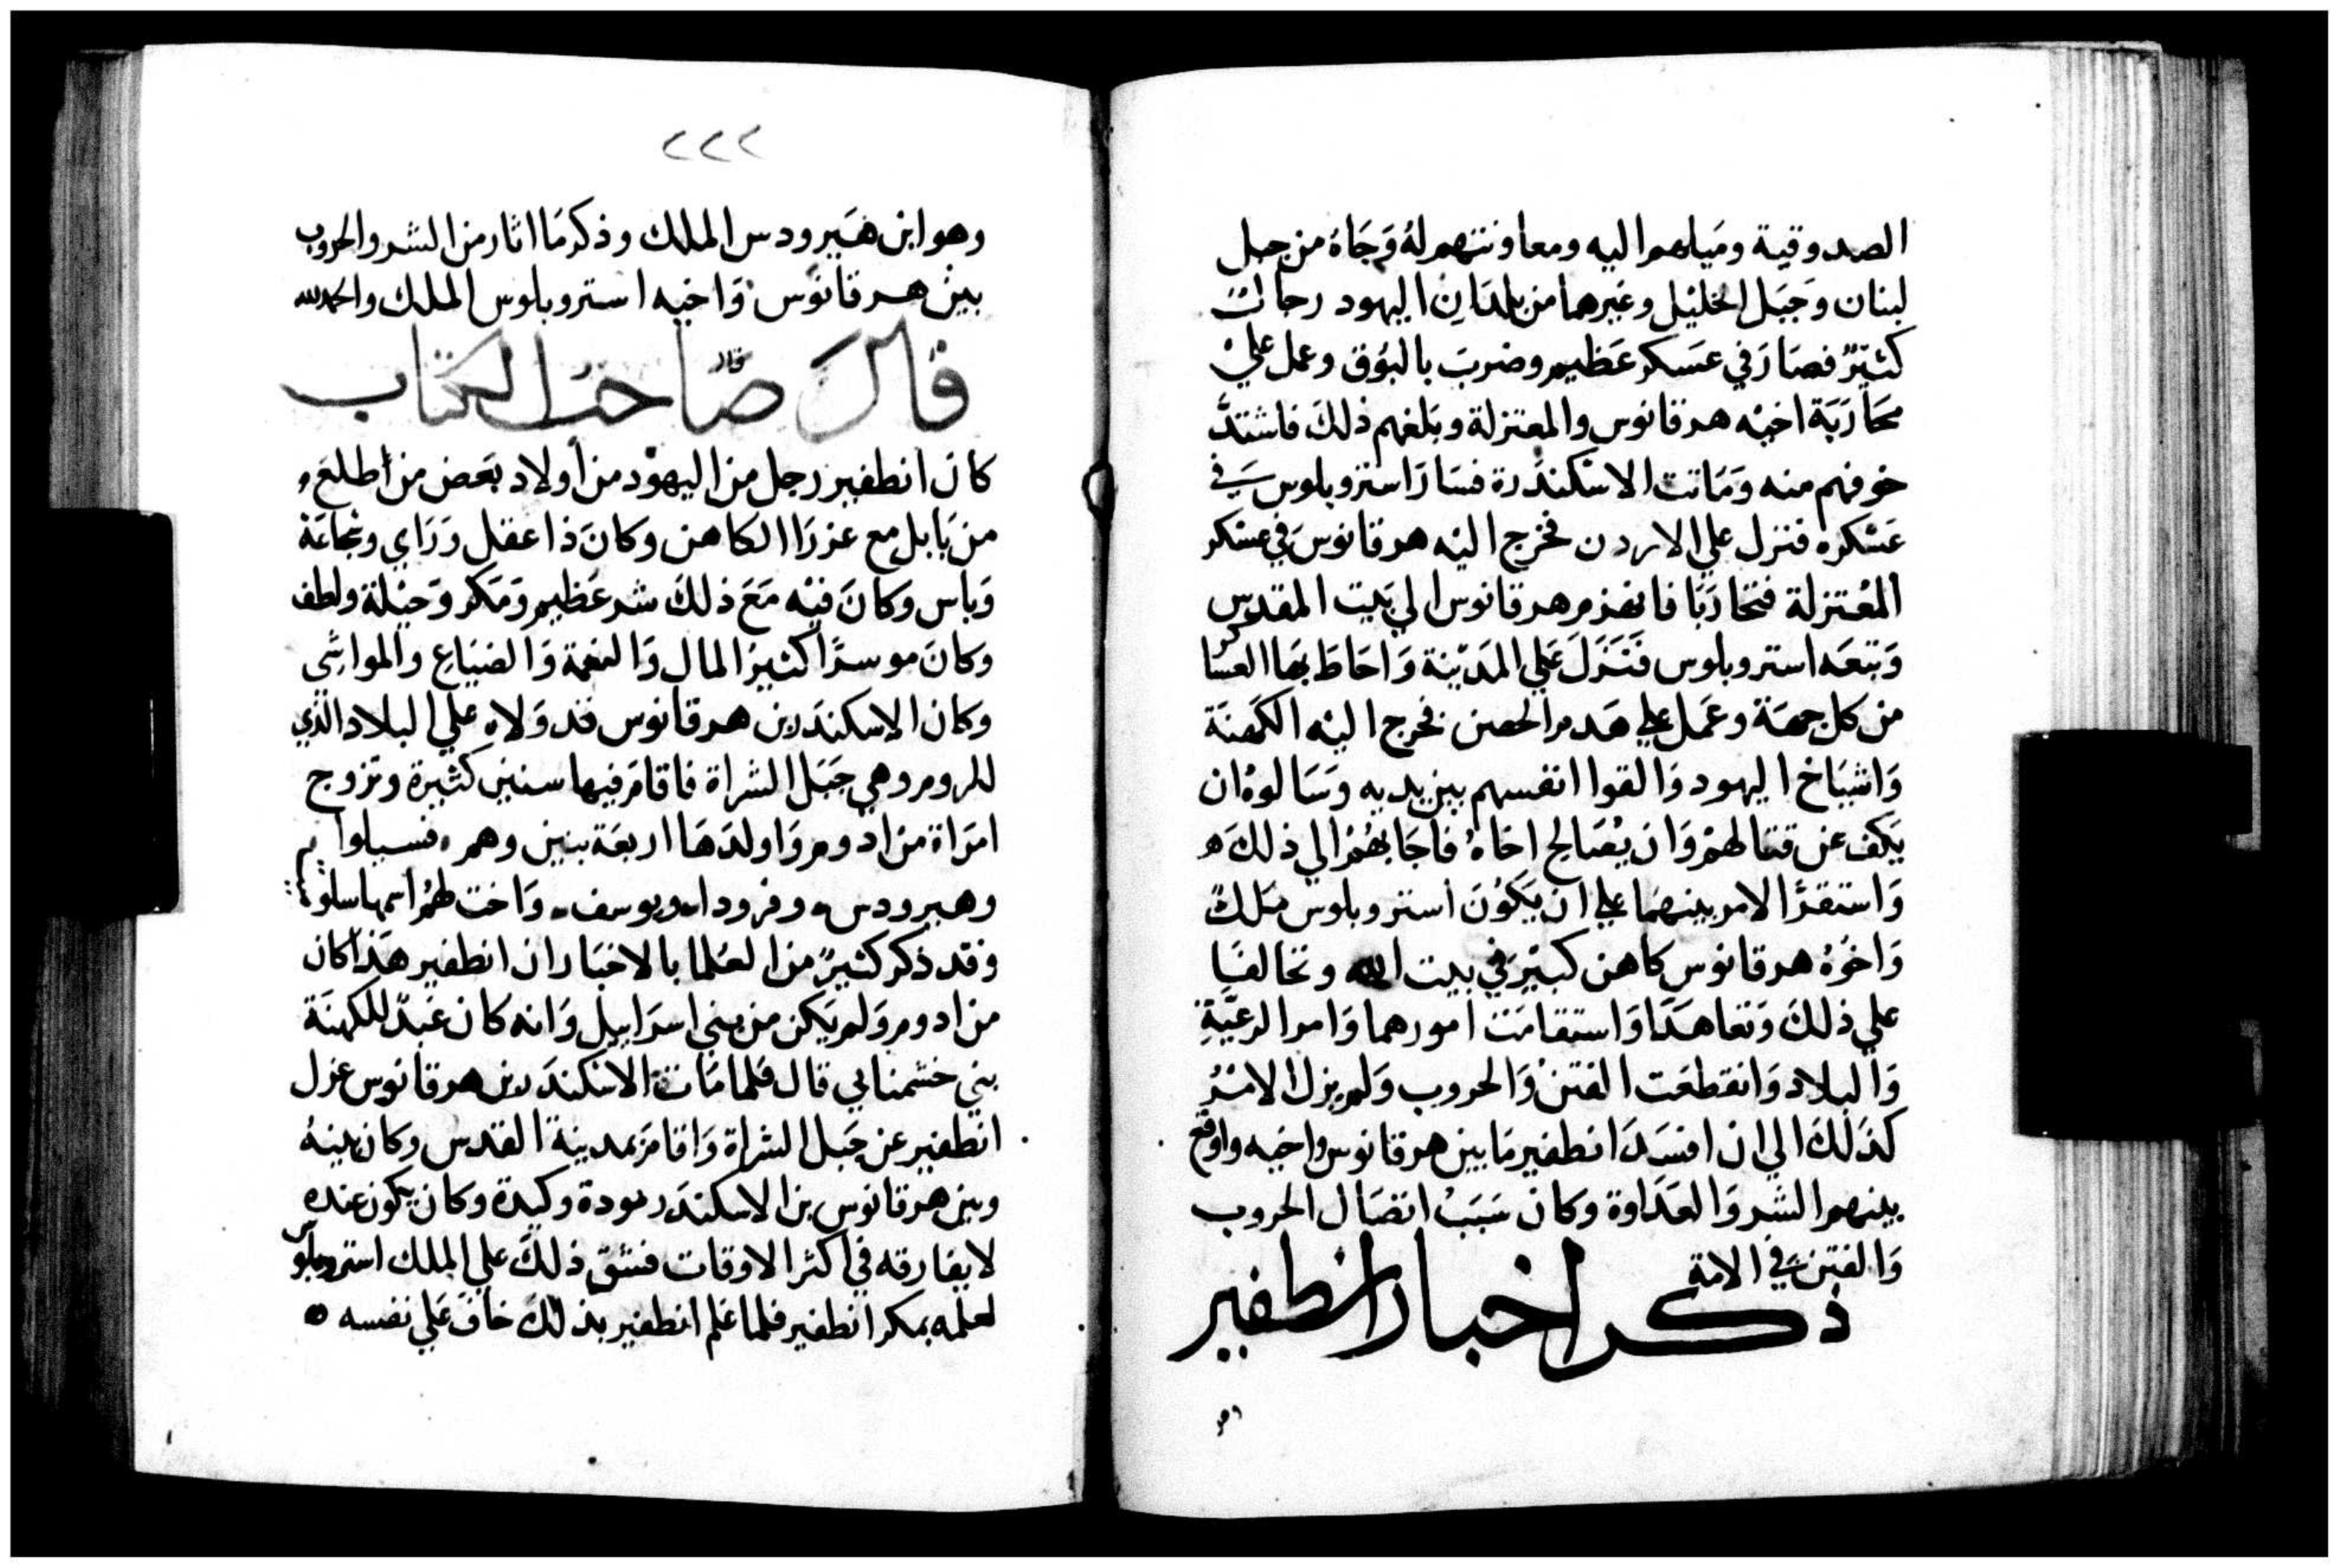 الصدوقية ومَيلهم اليه ومعاونتهم لهُ وَجَاهُ من جبل
لبنان وَجَبَل الخليْل وغيرهما من بلدَان اليهود رجالٌ
كثيرٌ فصَارَ في عسَكر عَظيم وضربَ بالبوُق وعمل عليْ
محَارَبَة اخيْه هرقانوس والمعتزلة وبَلغهم ذلكَ فاشتدَّ
خوفهم منه وَمَاتت الاسْكندَرة فسَارَ استروبلوس في
عَسْكره فنزل علي الاردن فخرج اليْه هرقانوسَ في عسْكر
المُعْتزلة فتحَارَبَا فانهزم هرقانوس الي بَيت المقدس
وَتبعَه استروبلوس فَنَزَلَ عَلي المَديْنة وَاحَاطَ بهَا العسَاكر
من كل جهَة وعمَل علي هَدم الحصن فخرج اليْه الكهَنَة
وَاشيَاخ اليهود وَالقوا انفسهم بين يديه وَسَالوهُ ان
يَكف عن قتالهمْ وَان يُصَالح اخاهُ فاجَابهُمْ الي ذلكَ ه
وَاستقرَّ الامر بينهمَا علي ان يَكوُنَ استروبلوس مَلكٌ
وَاخوُهُ هرقانوس كاهن كبيْر في بيت الله وتحالفَا
علي ذلكَ وَتعَاهَدَا وَاستقامَت امورهما وَامر الرعيَّةِ
وَالبلاد وَانقطعَت الفتنْ وَالحروب وَلم يزل الامْرُ
كذلكَ الي ان افسَدَ انطفير مَا بين هرقانوس واخيه واوقع
بينهم الشر وَالعَدَاوة وكانَ سَبَبُ اتصَال الحروب
وَالفتن في الامة
ذكر اخبار انطفير
٢٢٢
وهو ابن هَيرودس الملك وذكر مَا اثار من الشر والحروب
بين هرقانوس وَاخيه استروبلوس الملك والحمد لله
قالَ صَاحبُ الكتاب
كانَ انطفير رجل من اليهوْد من أولاد بَعض من أطلعَ و
من بَابل مع عزرَا الكاهن وَكانَ ذا عقل وَرَاي وشجاعَة
وَباس وكانَ فيْه مَعَ ذلكَ شر عَظيم وَمَكر وَحيْلة ولطف
وكانَ موسرًا كثير المال وَالنعمة وَالضيَاع والمواشي
وكان الاسكندَر بن هرقانوس قد وَلاه علي البلاد الذي
للروم وهي جَبَل الشراة فاقامَ فيها سنين كثيرة وتزوج
امرَاة من ادوم وَاولدَهَا اربعَة بنين وهم فسيلوا
وهيرودس وفرودا ويوسف وَاخت لهمُ اسمها سلو
وقد ذكر كثيرٌ من العُلما بالاخبَار ان انطفير هَذا كان
من ادوم وَلم يَكن من بني اسرَاييل وَانه كان عَبدٌ للكهنَة
بني خشمناي قال فلما مَات الاسْكندَر بن هرقانوس عزل
انطفير عن جَبل الشراة وَاقامَ بمدينة القدس وكان بينهُ
وبين هرقانوس بن الاسكندَر مودة وكيدة وكان يكون عنده
لا يفارقه في اكثر الاوقات فشقّ ذلكَ علي الملك استروبلوس
لعلمه بمكر انطفير فلما عَلم انطفير بذلكَ خافَ عَلي نفسه